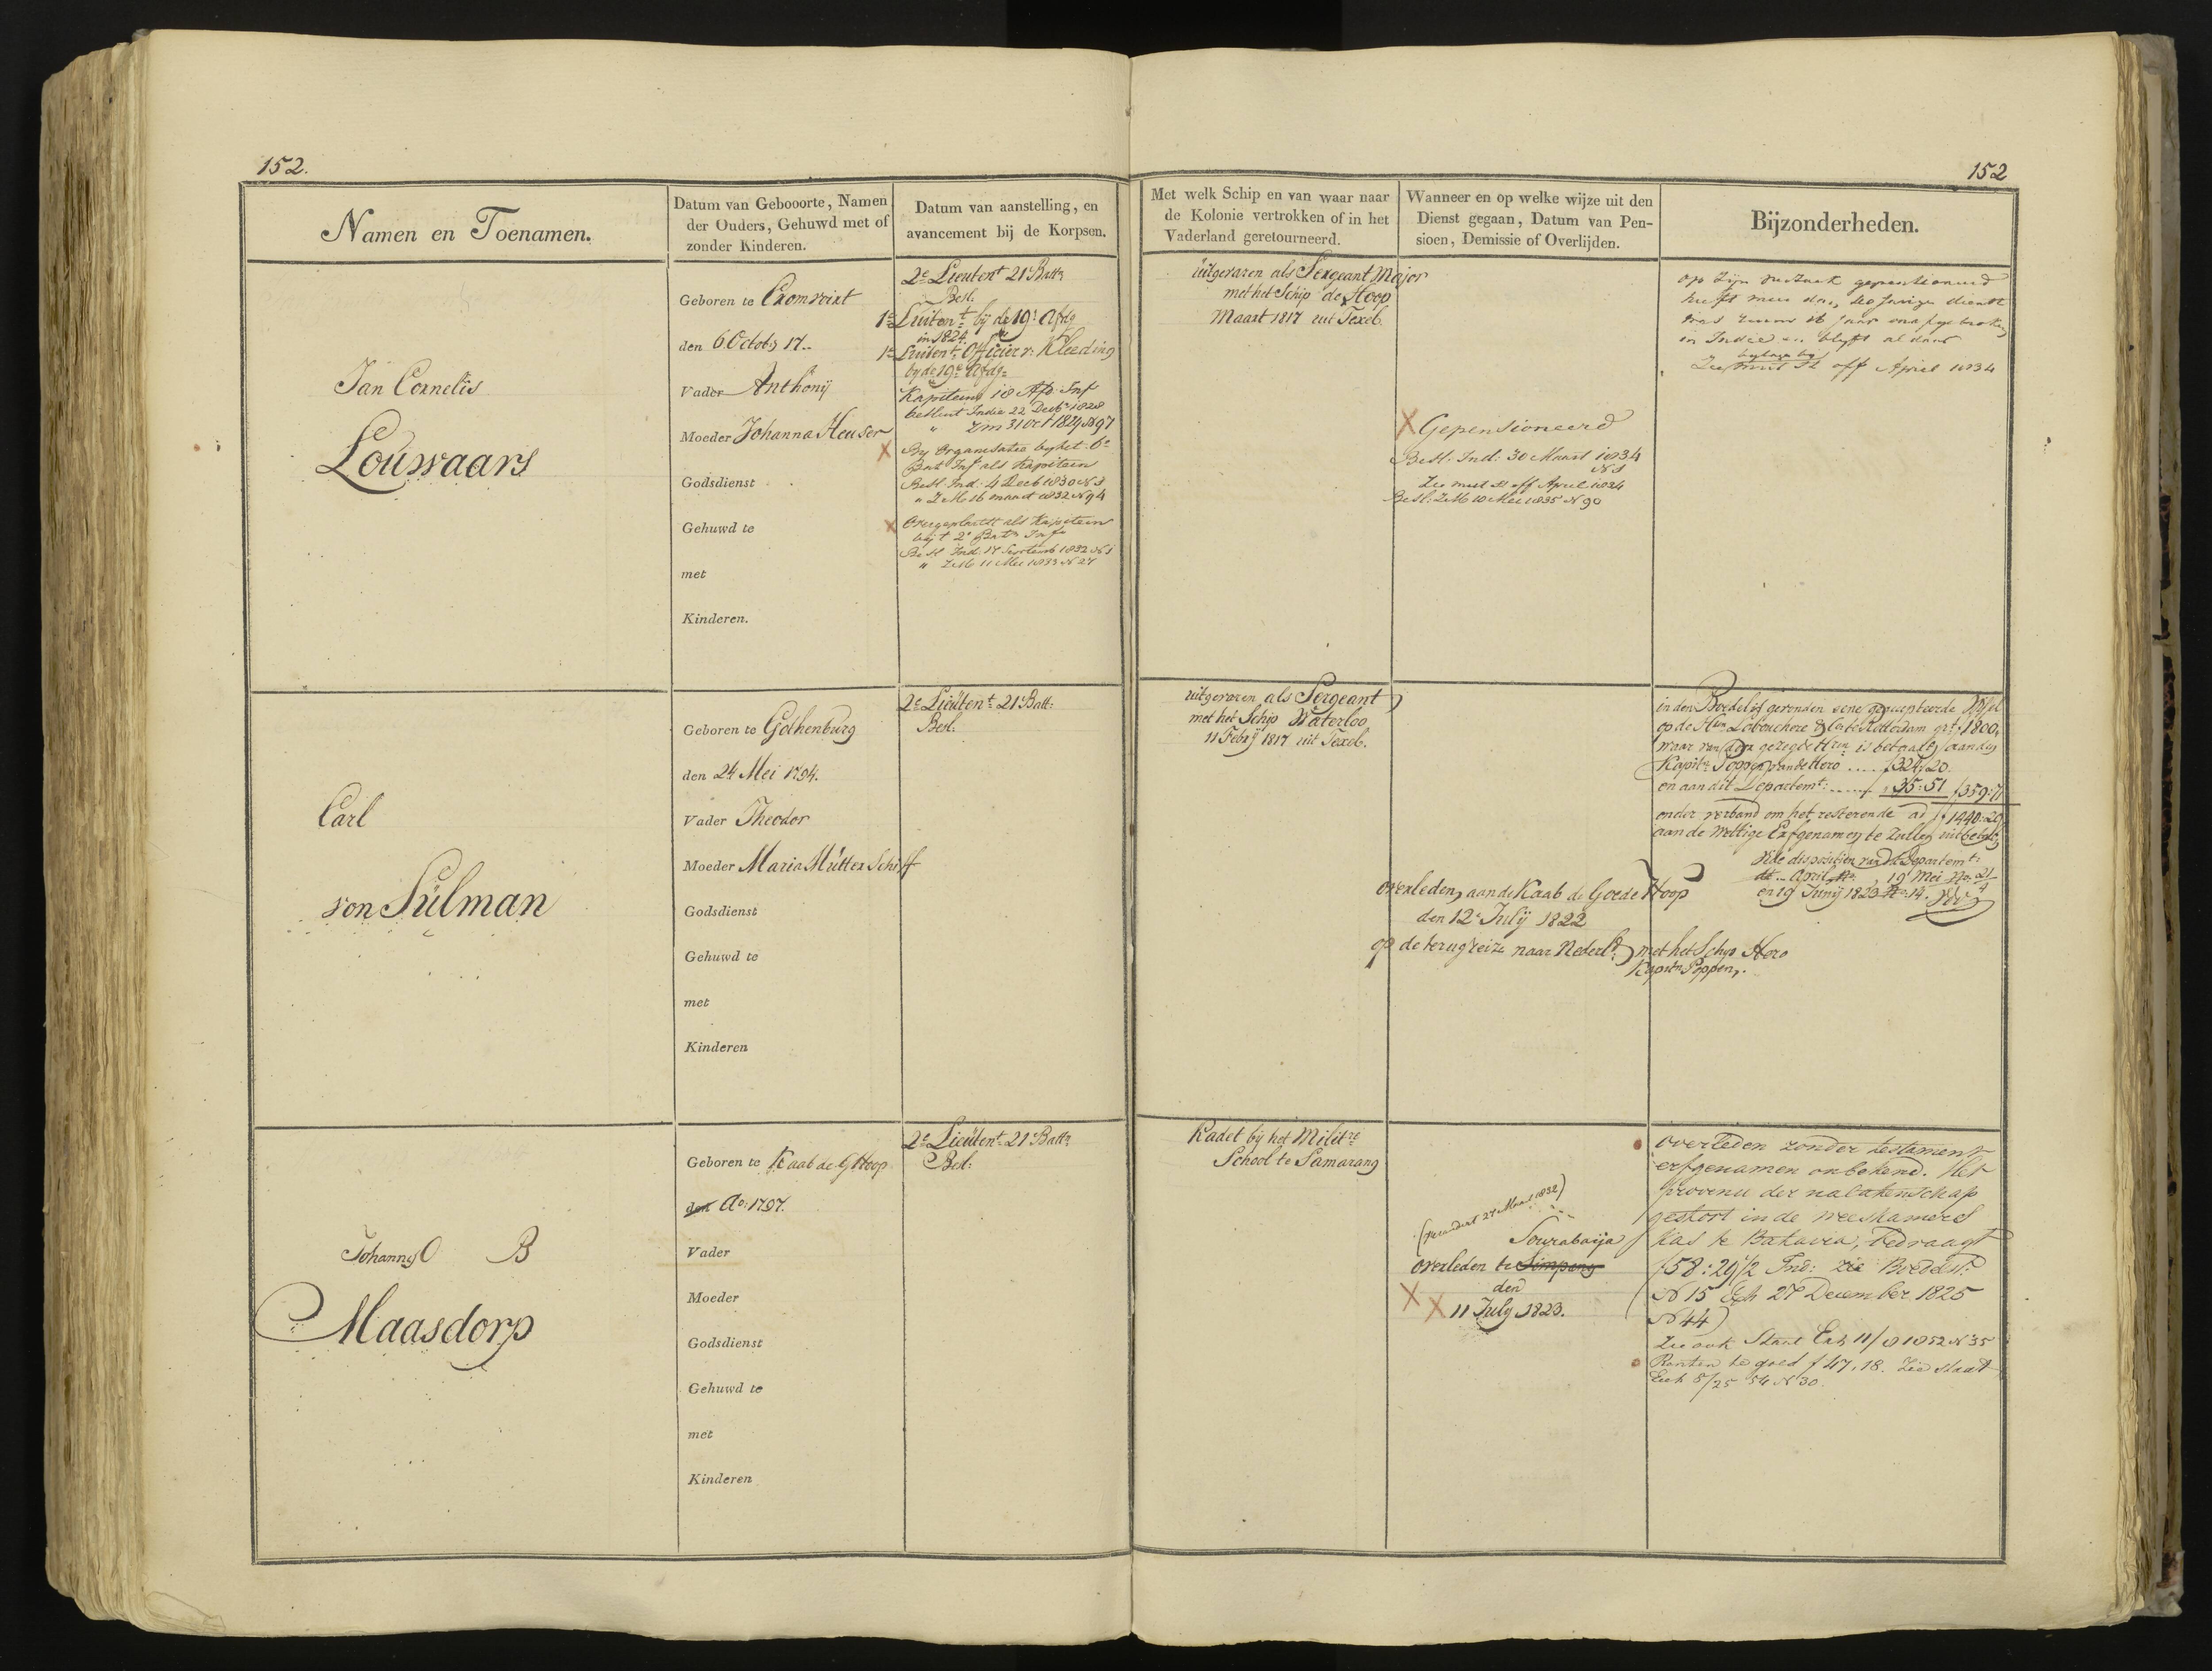 152.
152
Namen en Toenamen.
Datum van Gebooorte, Namen
der Ouders, Gehuwd met of
zonder Kinderen.
Datum van aanstelling, en
avancement bij de Korpsen.
Met welk Schip en van waar naar
de Kolonie vertrokken of in het
Vaderland geretourneerd.
Wanneer en op welke wijze uit den
Dienst gegaan, Datum van Pen-
sioen, Demissie of Overlijden.
Bijzonderheden.
Jan Cornelis
Louwaars
Geboren te Cromvoirt
den 6 Octobr 17..
Vader Anthonij
Moeder Johanna Heuser
Godsdienst
Gehuwd te
met
Kinderen.
2e Lieutent 21 Batt:
Besl.
1e Luitent bij de 19e Afdg
in 1824.
1e Luitent Officier v: Kleeding
bij de 19e Afdg=
Kapitein 18 Afd: Inf
besluit Indie 22 Decbr 1828
" Zm 31 Oct 1829 N97
X By Organisatie by het 6e
Bat Inf als Kapitein
Besl. Ind: 4 Decb 1830 N3
" Z M 16 maart 1832 N94
X Overgeplaatst als Kapitein
bij t 2e Batn Inf
Besl Ind. 17 Septemb 1832 N1
" ZM 11 Mei 1833 N 27
uitgevaren als Sergeant Major
met het Schip de Hoop
Maart 1817 uit Texel.
X Gepensioneerd
Besl: Ind: 30 Maart 1834
N3
Zie mut st off April 1834
Besl: ZM 10 Mei 1835 N 90
op Zijn verzoek gepensioneerd
heeft meer dan 20 jarige dienst
was ruim 16 jaar onafgebroken
in Indie en blyft aldaar
bylage by
Zie mut St off April 1834
Carl
von Sülman
Geboren te Gothenburg
den 24 Mei 1794.
Vader Theodor
Moeder Maria Mütter Schiff
Godsdienst
Gehuwd te
met
Kinderen
2e Lieütent 21 Batt:
Besl:
uitgevaren als Sergeant
met het Schip Waterloo
11 Febrij 1817 uit Texel.
overleden aan de Kaab de Goede Hoop
den 12e Julij 1822
op de terugreize naar Nederld met het Schip Hero
Kapitn Poppen.
in den Boedel is gevonden eene geaccepteerde Wissel
op de Hren Labouchere & Co te Rotterdam grt f 1800,
waar van door gezegde Hren is betaald aan den
Kapitn Poppen van de Hero .... f 324:20.
en aan dit Departemt: ...... " 35:51 f 359:71
onder verband om het resterende ad f 1440:29
aan de Wettige Erfgenamen te zullen uitbetalen
Vide disposition van dit Departemt:
dt .. April No , 19 Mei No. 21/4
en 19 Junij 1823 No 14.
Johannes O B
Maasdorp
Geboren te Kaab de G Hoop
den Ao: 1797.
Vader
Moeder
Godsdienst
Gehuwd te
met
Kinderen
2e Lieütent 21 Battn
Besl:
Kadet bij het Militre
School te Samarang
(verandert 27 Maart 1832)
Sourabaija
overleden te Simpang
den
X X 11 July 1823.
overleden zonder testament
erfgenamen onbekend. Het
provenu der nalatenschap
gestort in de weeskamers
Kas te Batavia, bedraagt
f 58:29 1/2 Ind: zie Boedelst:
(N 15 Exh 27 December 1825
N 44)
Zie ook Staat Exh 11/8 1852 N 35
Renten te goed f 47,18. Zie staat
Exh 8/25 54 N 30.